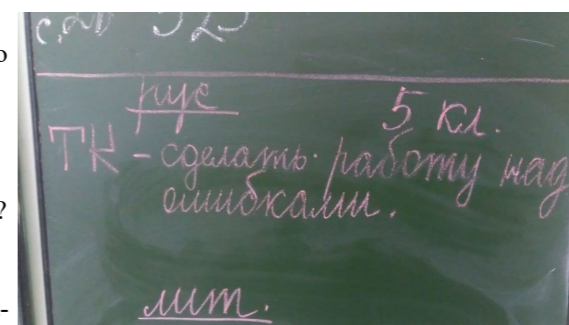 рус 5 кл.
ТК - сделать работу над
ошибками.
лит.